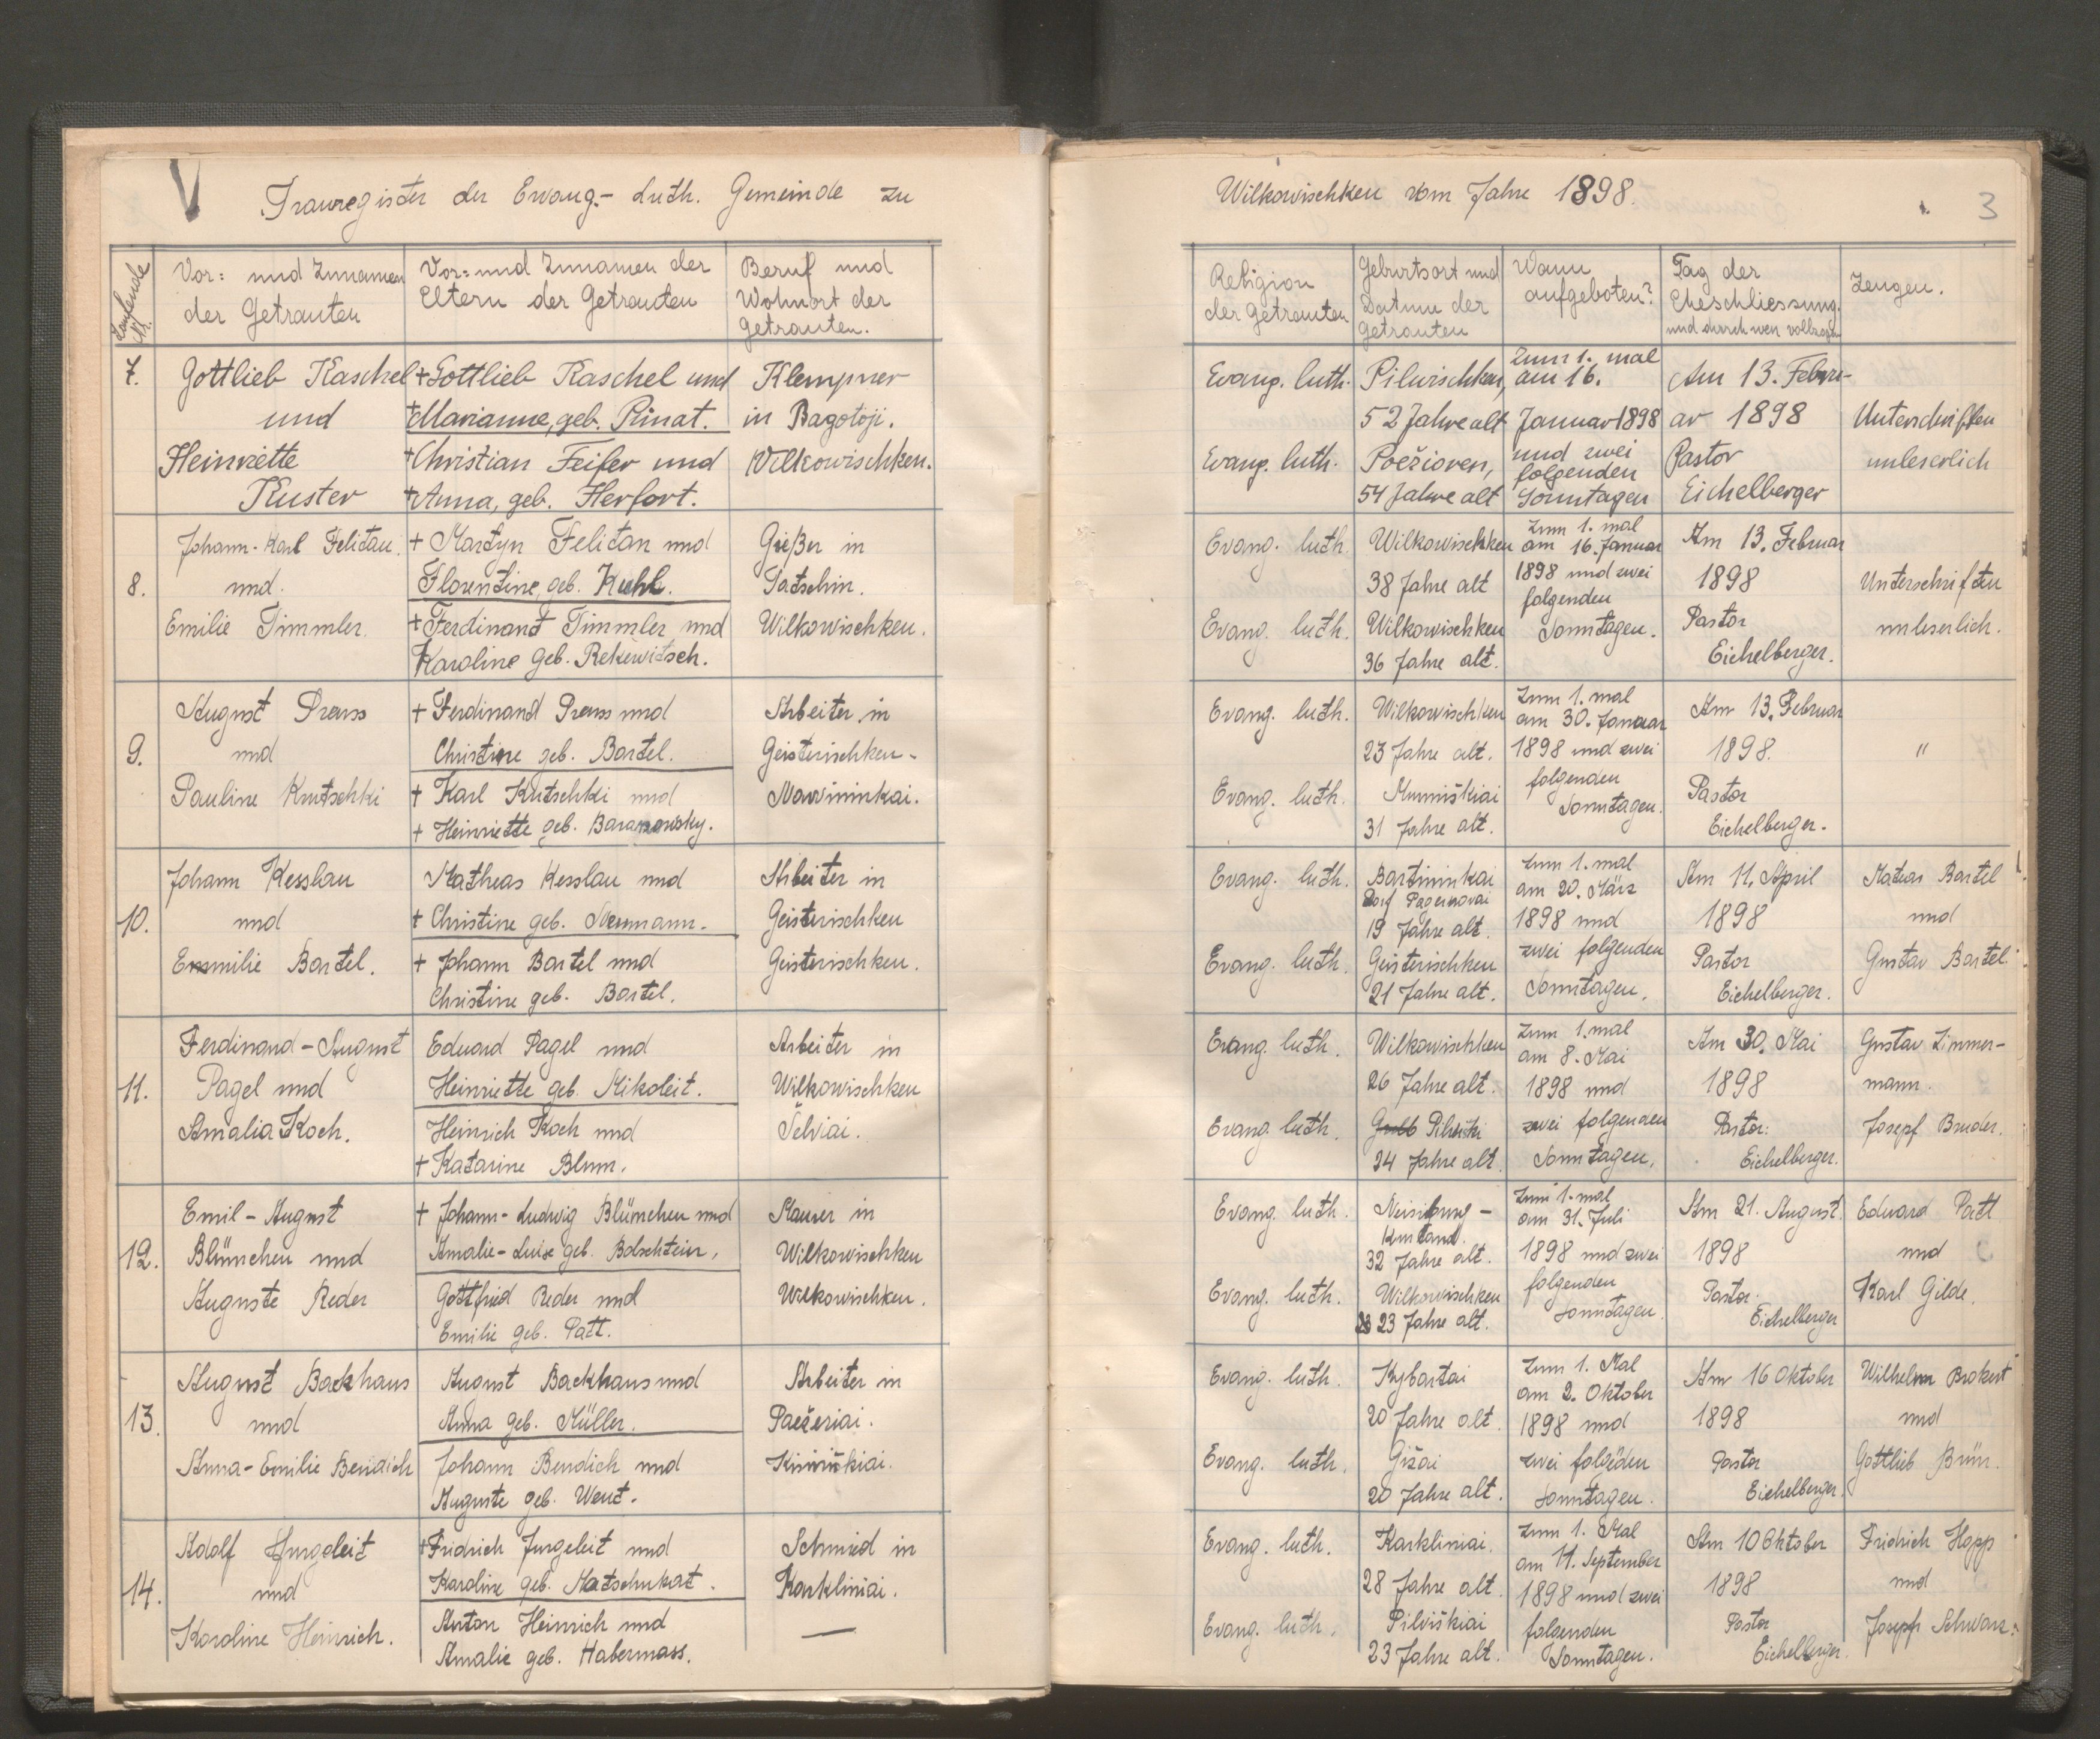 V
Trauregister der Evang.- Luth. Gemeinde zu
Laufende Nr.
Vor= und Zunamen
der Getrauten
Vor= und Zunamen der
Eltern der Getrauten
Beruf und
Wohnort der
getrauten.
7.
Gottlieb Kaschel
und
Heinriette
Kuster
+ Gottlieb Kaschel und
+ Marianne, geb. Pinat.
+ Christian Feifer und
+ Anna, geb. Herfort.
Klempner
in Bagotoji.
Wilkowischken.
8.
Johann-Karl Felitan
und
Emilie Timmler.
+ Martyn Felitan und
Florentine, geb. Kuhl.
+ Ferdinant Timmler und
Karoline geb. Rekewitsch.
Gießer in
Tatschin.
Wilkowischken.
9.
August Prauss
und
Pauline Krutschki
+ Ferdinand Prauss und
Christine geb. Bartel.
+ Karl Krutschki und
+ Heinriette geb. Baranowsky.
Arbeiter in
Geisterischken-
Nawininkai.
10.
Johann Kesslau
und
Emmilie Bartel.
Matheas Kesslau und
+ Christine geb. Neumann.
+ Johann Bartel und
Christine geb. Bartel.
Arbeiter in
Geisterischken
Geisterischken.
11.
Ferdinand-August
Pagel und
Amalia Koch.
Eduard Pagel und
Heinriette geb. Mikoleit.
Heinrich Koch und
+ Katarine Blum.
Arbeiter in
Wilkowischken
Šelviai.
12.
Emil-August
Blümchen und
Auguste Reder
+ Johann-Ludwig Blümchen und
Amalie-Luise geb. Bolschtein.
Gottfried Reder und
Emilie geb. Patt.
Maurer in
Wilkowischken
Wilkowischken.
13.
August Backhaus
und
Anna-Emilie Bendich
August Backhaus und
Anna geb. Müller.
Johann Bendich und
Auguste geb. Went.
Arbeiter in
Paežeriai.
14.
Adolf Jurgeleit
und
Karoline Heinrich.
+ Fridrich Jurgeleit und
Karoline geb. Matschukat.
Anton Heinrich und
Amalie geb. Habermass.
Schmied in
Karkliniai.
—
Wilkowischken vom Jahre 1898.
3
Religion
der Getrauten
Geburtsort und
Datum der
Getrauten
Wann
aufgeboten?
Tag der
Eheschliessung
und durch wen vollzogen
Zeugen.
Evang. luth.
Evang. luth.
Pilwischken,
52 Jahre alt
Poežioren,
54 Jahre alt
Zum 1. mal
am 16.
Januar 1898
und zwei
folgenden
Sonntagen
Am 13. Febru-
ar 1898
Pastor
Eichelberger
Unterschriften
unleserlich
Evang. luth.
Evang. luth.
Wilkowischken
38 Jahre alt
Wilkowischken
36 Jahre alt.
Zum 1. mal
am 16. Januar
1898 und zwei
folgenden
Sonntagen.
Am 13. Februar
1898
Pastor
Eichelberger.
Unterschriften
unleserlich.
Evang. luth.
Evang. luth.
Wilkowischken
23 Jahre alt.
Mumiškiai
31 Jahre alt.
Zum 1. mal
am 30. Januar
1898 und zwei
folgenden
Sonntagen.
Am 13. Februar
1898.
Pastor
Eichelberger.
"
Evang. luth.
Evang. luth.
Bartininkai
Dorf Pagernavai
19 Jahre alt.
Geisterischken
21 Jahre alt.
Zum 1. mal
am 20. März
1898 und
zwei folgenden
Sonntagen.
Am 11. April
1898
Pastor
Eichelberger.
Matias Bartel
und
Gustav Bartel.
Evang. luth.
Evang. luth.
Wilkowischken
26 Jahre alt.
24 Jahre alt.
Zum 1. mal
am 8. Mai
1898 und
zwei folgenden
Sonntagen.
Am 30. Mai
1898
Pastor:
Eichelberger.
Gustav Zimmer-
mann.
Josepf Bruder.
Evang. luth.
Evang. luth.
Kurland.
32 Jahre alt.
Wilkowischken
23 Jahre alt.
Zum 1. mal
am 31. Juli
1898 und zwei
folgenden
Sonntagen.
Am 21. August.
1898
Pastor
Eichelberger
Eduard Patt
und
Karl Gilde.
Evang. luth.
Evang. luth.
Kybartai
20 Jahre alt.
Gižai
20 Jahre alt.
Zum 1. Mal
am 2. Oktober
1898 und
zwei folgeden
Sonntagen.
Am 16 Oktober
1898
Pastor
Eichelberger.
Wilhelm Brokert
und
Gottlieb Brün.
Evang. luth.
Evang. luth.
Karkliniai.
28 Jahre alt.
Pilviškiai
23 Jahre alt.
Zum 1. Mal
am 11. September
1898 und zwei
folgenden
Sonntagen.
Am 10 Oktober
1898
Pastor
Eichelberger.
Fridrich Hopp
und
Josepf Schwarz.